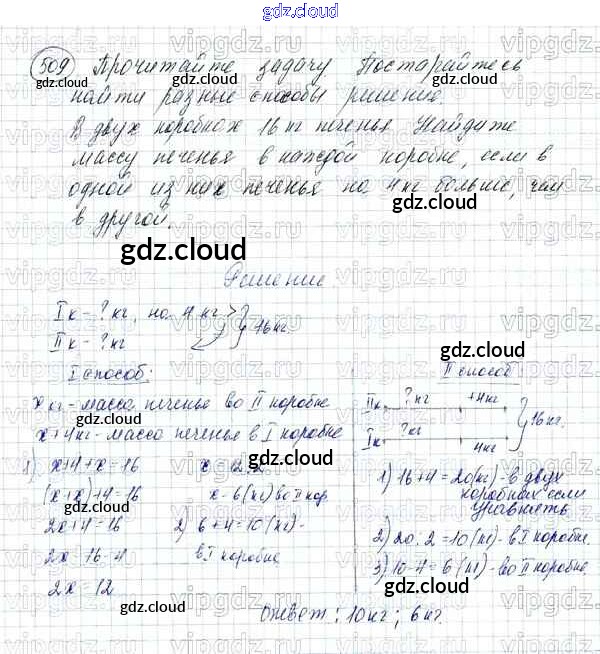 gdz.cloud
509 Прочитайте задачу Постарайтесь
найти разные способы решения.
В двух коробках 16 кг печенья Найдите
массу печенья в каждой коробке, если в
одной из них печенья на 4 кг больше, чем
в другой.
Решение.
I к - ? кг, на 4 кг >
II к - ? кг
16 кг.
I способ:
x кг - масса печенья во II коробке
x+4 кг - масса печенья в I коробке
1) x+4+x=16
(x+x)+4=16
2x+4=16
2x=16-4
2x=12
x=12:2
x=6 (кг) во II кор
2) 6+4=10 (кг) -
в I коробке
II способ
II к ? кг +4 кг
I к ? кг 4 кг
16 кг.
1) 16+4=20 (кг) - в двух
коробках если
уравнять
2) 20:2=10 (кг) - в I коробке.
3) 10-4=6 (кг) - во II коробке.
Ответ: 10 кг; 6 кг.